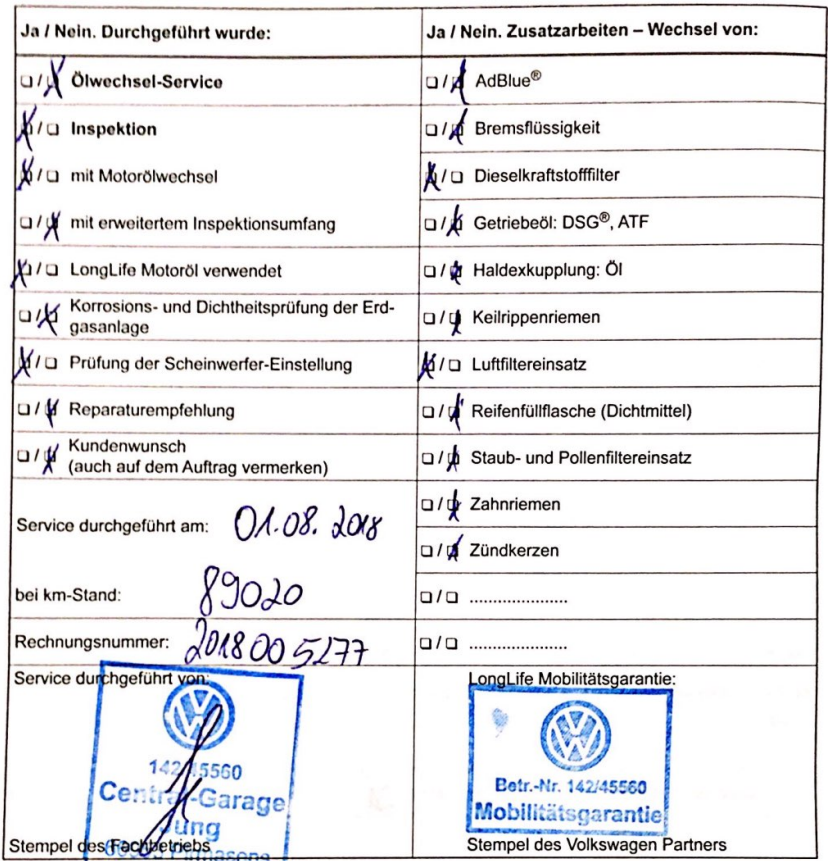 Ja / Nein. Durchgeführt wurde:
❏ / ❏ Ölwechsel-Service
❏ / ❏ Inspektion
❏ / ❏ mit Motorölwechsel
❏ / ❏ mit erweitertem Inspektionsumfang
❏ / ❏ LongLife Motoröl verwendet
❏ / ❏ Korrosions- und Dichtheitsprüfung der Erd-
gasanlage
❏ / ❏ Prüfung der Scheinwerfer-Einstellung
❏ / ❏ Reparaturempfehlung
❏ / ❏ Kundenwunsch
(auch auf dem Auftrag vermerken)
Service durchgeführt am: 01.08. 2018
bei km-Stand: 89020
Rechnungsnummer: 2018005277
Service durchgeführt von:
142/45560
Central-Garage
Jung
Stempel des Fachbetriebs
Ja / Nein. Zusatzarbeiten – Wechsel von:
❏ / ❏ AdBlue®
❏ / ❏ Bremsflüssigkeit
❏ / ❏ Dieselkraftstofffilter
❏ / ❏ Getriebeöl: DSG®, ATF
❏ / ❏ Haldexkupplung: Öl
❏ / ❏ Keilrippenriemen
❏ / ❏ Luftfiltereinsatz
❏ / ❏ Reifenfüllflasche (Dichtmittel)
❏ / ❏ Staub- und Pollenfiltereinsatz
❏ / ❏ Zahnriemen
❏ / ❏ Zündkerzen
❏ / ❏ .....................
❏ / ❏ .....................
LongLife Mobilitätsgarantie:
Betr.-Nr. 142/45560
Mobilitätsgarantie
Stempel des Volkswagen Partners